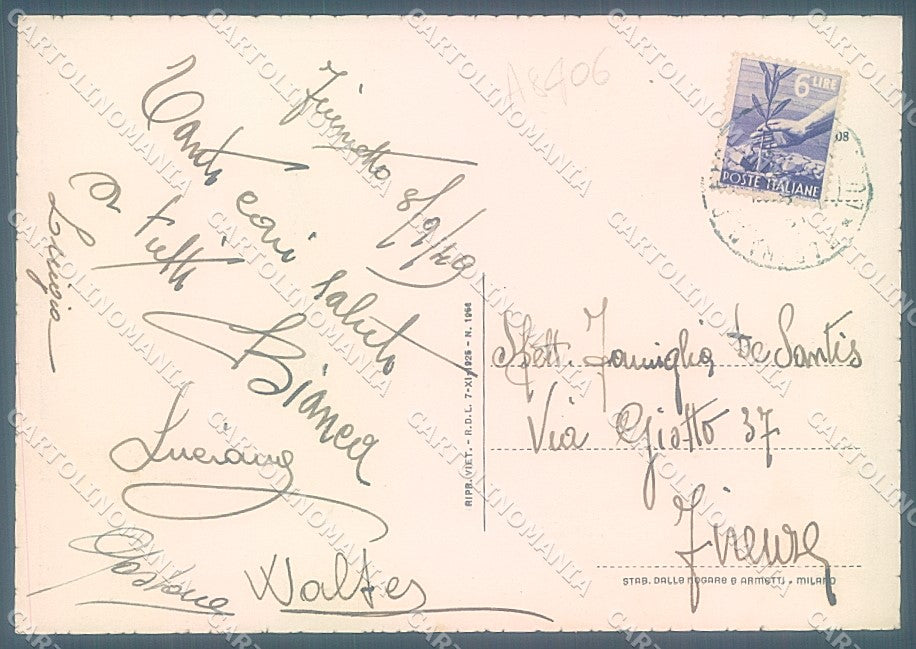 A8406
6 LIRE
POSTE ITALIANE
8/9/49
Tanti cari saluti
a tutti
Bianca
Luigia
Luciana
Walter
Spett. Famiglia De Santis
Via Giotto 37
Firenze
RIPR. VIET. - R.D.L. 7-XI-1925 - N. 1956
STAB. DALLE NOGARE E ARMETTI - MILANO
CARTOLINOMANIA